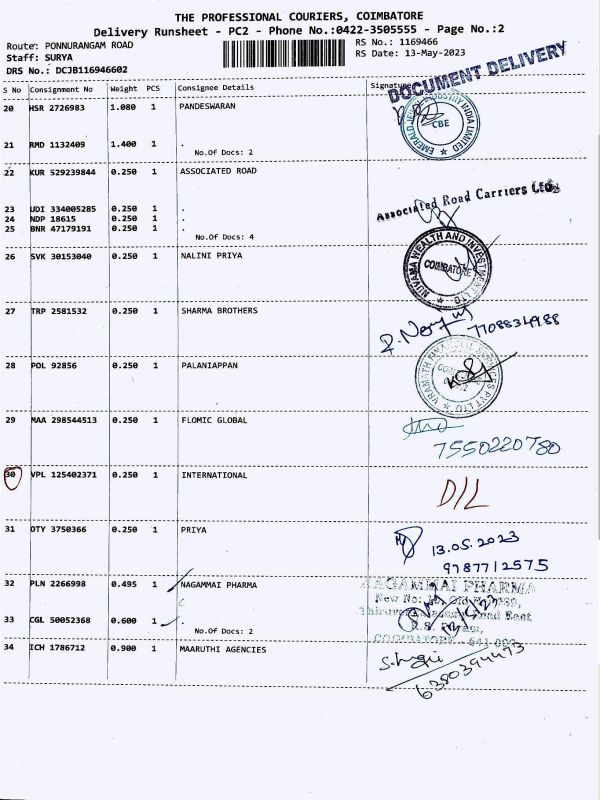 THE PROFESSIONAL COURIERS, COIMBATORE
Delivery Runsheet - PC2 - Phone No.:0422-3505555 - Page No.:2
Route: PONNURANGAM ROAD
Staff: SURYA
DRS No.: DCJB116946602
RS No.: 1169466
RS Date: 13-May-2023
S No Consignment No Weight PCS Consignee Details Signature
DOCUMENT DELIVERY
20 HSR 2726983 1.080 1 PANDESWARAN
EMERALD JEWEL INDUSTRY INDIA LIMITED
CBE
21 RMD 1132409 1.400 1 .
No.Of Docs: 2
22 KUR 529239844 0.250 1 ASSOCIATED ROAD
Associated Road Carriers Ltd.
23 UDI 334005285 0.250 1 .
24 NDP 18615 0.250 1 .
25 BNR 47179191 0.250 1 .
No.Of Docs: 4
26 SVK 30153040 0.250 1 NALINI PRIYA
NUVAMA WEALTH AND INVESTMENT LTD
COIMBATORE
27 TRP 2581532 0.250 1 SHARMA BROTHERS
7708834988
28 POL 92856 0.250 1 PALANIAPPAN
29 MAA 298544513 0.250 1 FLOMIC GLOBAL
7550220780
30 VPL 125402371 0.250 1 INTERNATIONAL
D/L
31 OTY 3750366 0.250 1 PRIYA
13.05.2023
9787712575
32 PLN 2266998 0.495 1 NAGAMMAI PHARMA
NAGAMMAI PHARMA
33 CGL 50052368 0.600 1 .
No.Of Docs: 2
COIMBATORE
34 ICH 1786712 0.900 1 MAARUTHI AGENCIES
6350394493